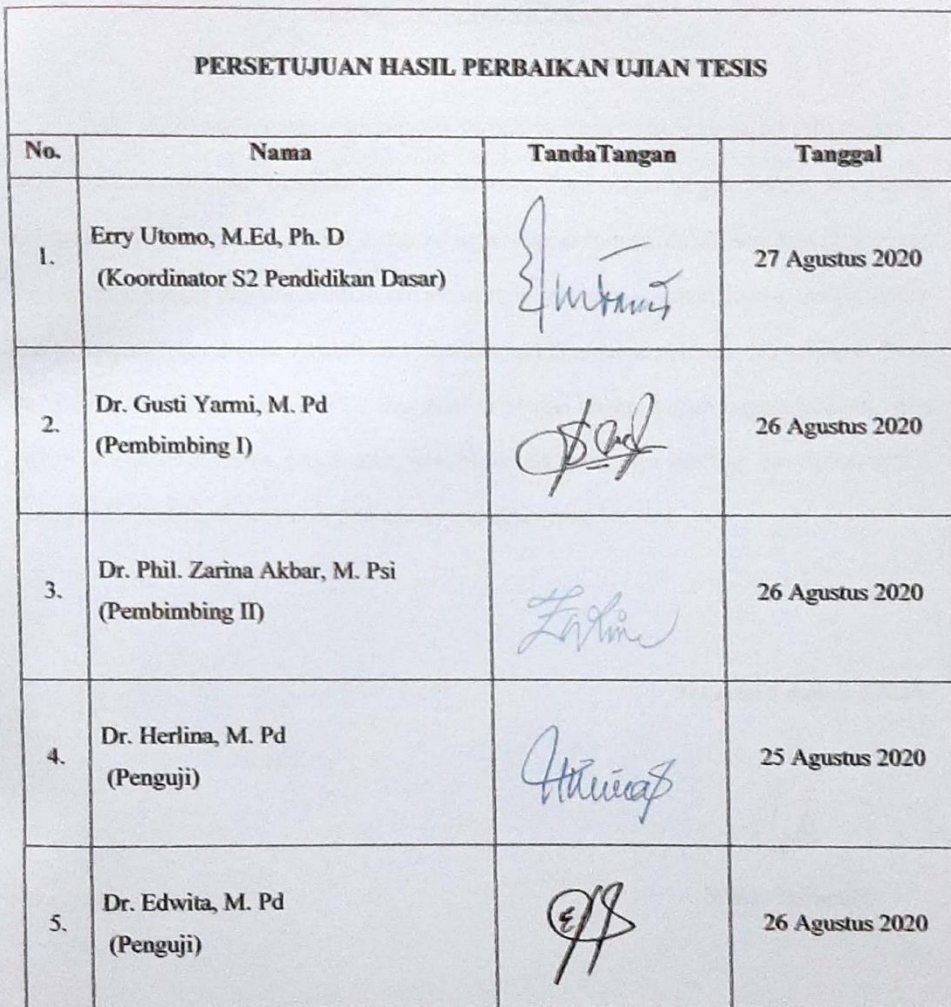 PERSETUJUAN HASIL PERBAIKAN UJIAN TESIS
No. Nama TandaTangan Tanggal
1. Erry Utomo, M.Ed, Ph. D
(Koordinator S2 Pendidikan Dasar)
27 Agustus 2020
2. Dr. Gusti Yarmi, M. Pd
(Pembimbing I)
26 Agustus 2020
3. Dr. Phil. Zarina Akbar, M. Psi
(Pembimbing II)
26 Agustus 2020
4. Dr. Herlina, M. Pd
(Penguji)
25 Agustus 2020
5. Dr. Edwita, M. Pd
(Penguji)
26 Agustus 2020